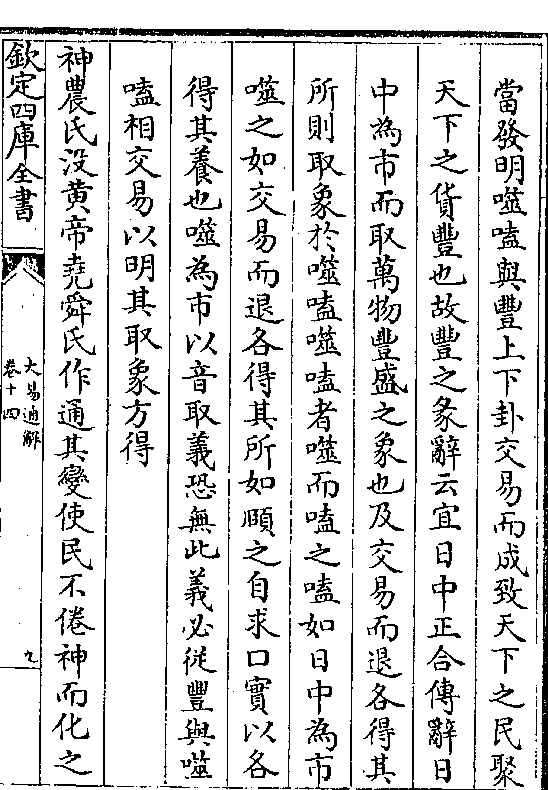 當發明噬嗑與豐上下卦交易而成致天下之民聚
天下之貨豐也故豐之彖辭云宜日中正合傳辭日
中為市而取萬物豐盛之象也及交易而退各得其
所則取象於噬嗑噬嗑者噬而嗑之嗑如日中為市
噬之如交易而退各得其所如頤之自求口實以各
得其養也噬為市以音取義恐無此義必從豐與噬
嗑相交易以明其取象方得
神農氏没黄帝堯舜氏作通其變使民不倦神而化之
欽定四庫全書
大易通解
卷十四
九